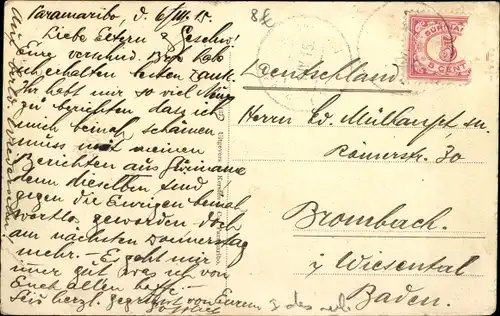 Paramaribo, d. 6/III. 15.
Liebe Eltern & Geschw!
Eine verschied. Brfe habe
ich erhalten besten Dank.
Ihr habt mir so viel
zu berichten dass ich
mich beinah schämen
muss mit meinen
Berichten aus Suriname
denn dieselben sind
gegen die Eurigen beinah
wertlos geworden doch
am nächsten Donnerstag
mehr. – Es geht mir
immer gut was ich von
Euch allen hoffe.
Seid herzl. gegrüsst von Eurem
Gottlieb
SURINAME
5 CENT
Deutschland
Herrn Ed. Mülhaupt
Römerstr. 30
Brombach.
i/ Wiesental
Baden.